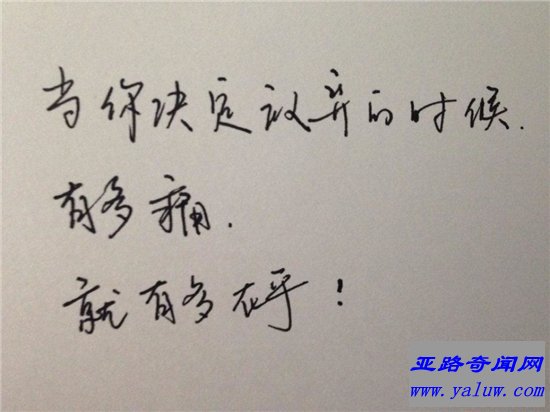 当你决定放弃的时候.
有多痛.
就有多在乎!
亚路奇闻网
www.yaluw.com